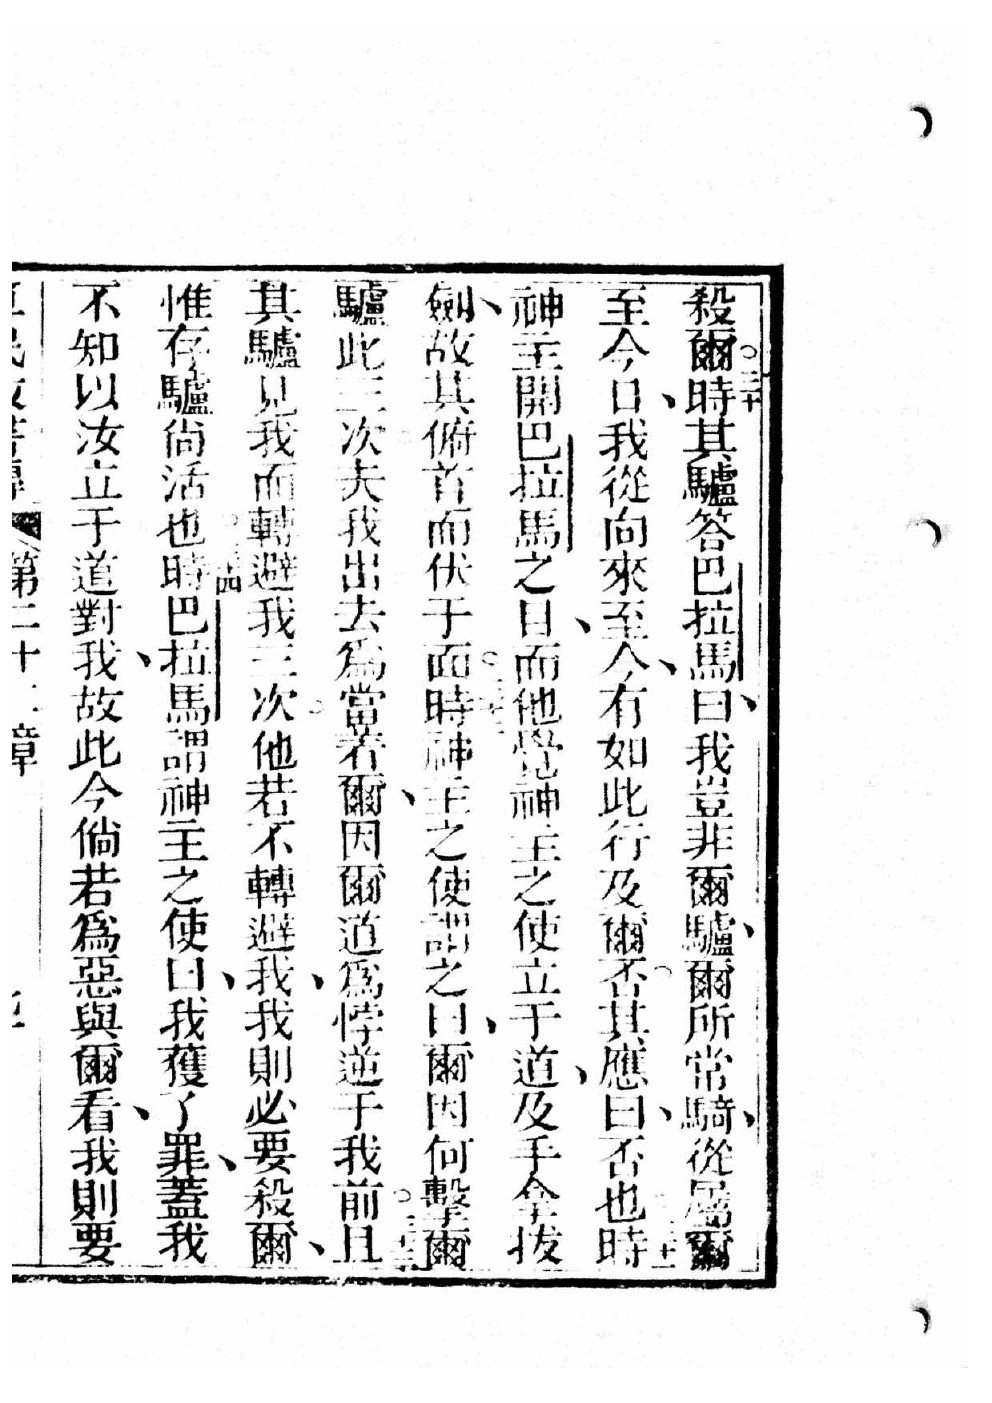 殺爾時三十其驢答巴拉馬曰、我豈非爾驢、爾所常騎、從屬爾
至今日、我從向來至今、有如此行及爾否其應曰、否也時
神主開巴拉馬之目、而他覺神主之使立于道、及手拿拔
劍、故其俯首而伏于面時神主之使謂之曰、爾因何擊爾
驢此三次夫我出去為當若爾、因爾道為悖逆于我前且
其驢見我而轉避我三次他若不轉避我、我則必要殺爾、
惟存驢尚活也時巴拉馬謂神主之使曰、我獲了罪、蓋我
不知以汝立于道對我、故此今倘若為惡與爾看、我則要
第二十二章